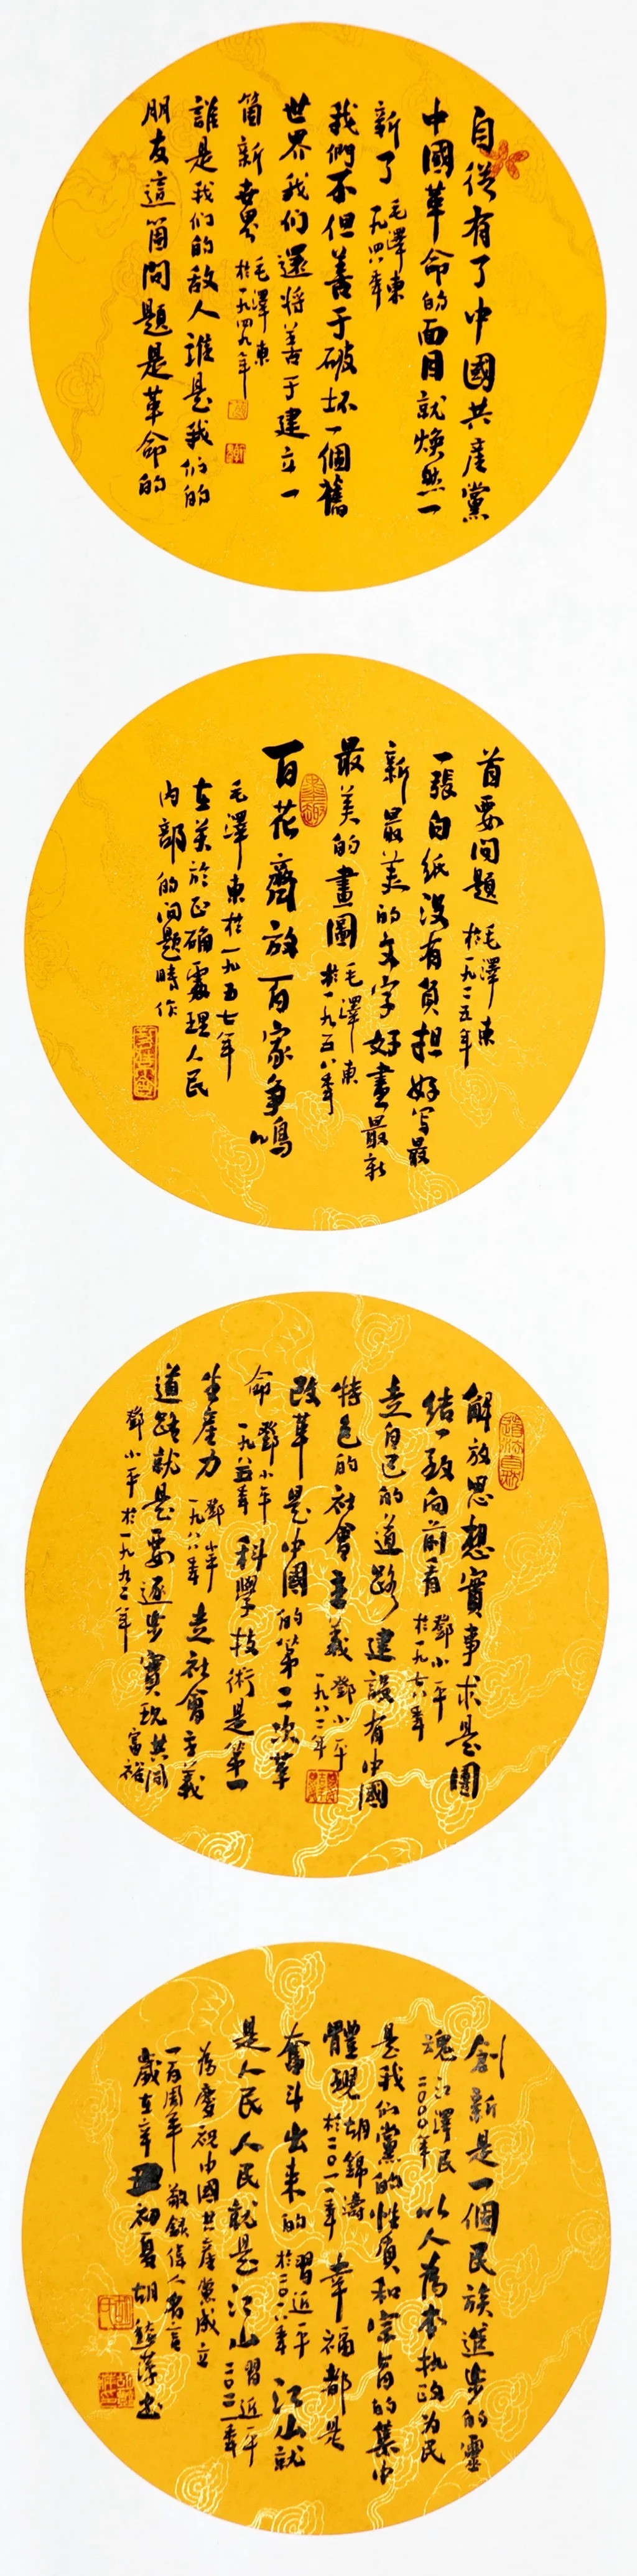 自從有了中國共產黨
中國革命的面目就煥然一
新了
毛澤東
一九四八年
我們不但善于破坏一個舊
世界我们還将善于建立一
箇新世界
毛澤東
於一九四九年
誰是我们的敌人誰是我们的
朋友這箇问題是革命的
首要问題
毛澤東
於一九二五年
一張白纸没有負担好写最
新最美的文字好畫最新
最美的畫圖
毛澤東
於一九五八年
百花齊放百家争鳴
毛澤東於一九五七年
在関於正确處理人民
内部的问题時作
解放思想實事求是團
结一致向前看
鄧小平
於一九七八年
走自己的道路建設有中國
特色的社會主義
鄧小平
一九八二年
改革是中國的第二次革
命
鄧小平
一九八五年
科學技術是第一
生產力
鄧小平
一九八八年
走社會主義
道路就是要逐步實现共同
富裕
鄧小平於一九九二年
創新是一個民族進步的靈
魂
江澤民
二〇〇〇年
以人為本执政为民
是我们黨的性質和宗旨的集中
體现
胡錦濤
於二〇一一年
幸福都是
奮斗出来的
習近平
於二〇一八年
江山就
是人民人民就是江山
習近平
二〇二一年
為慶祝中國共產黨成立
一百周年敬録偉人名言
歲在辛丑初夏胡